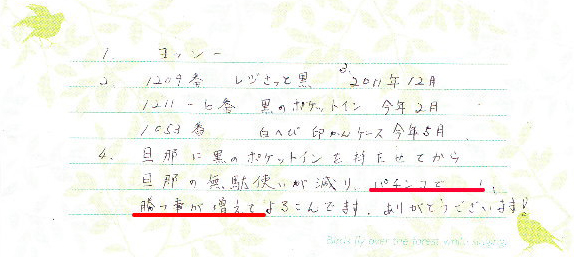 1. ヨッシー
2. 1209番 レジさっと黒 3. 2011年12月
1211-七番 黒のポケットイン 今年2月
1053番 白へび印かんケース 今年5月
4. 旦那に黒のポケットインを持たせてから
旦那の無駄使いが減り、パチンコで
勝つ事が増えてよろこんでます。ありがとうございます!
Birds fly over the forest while singing